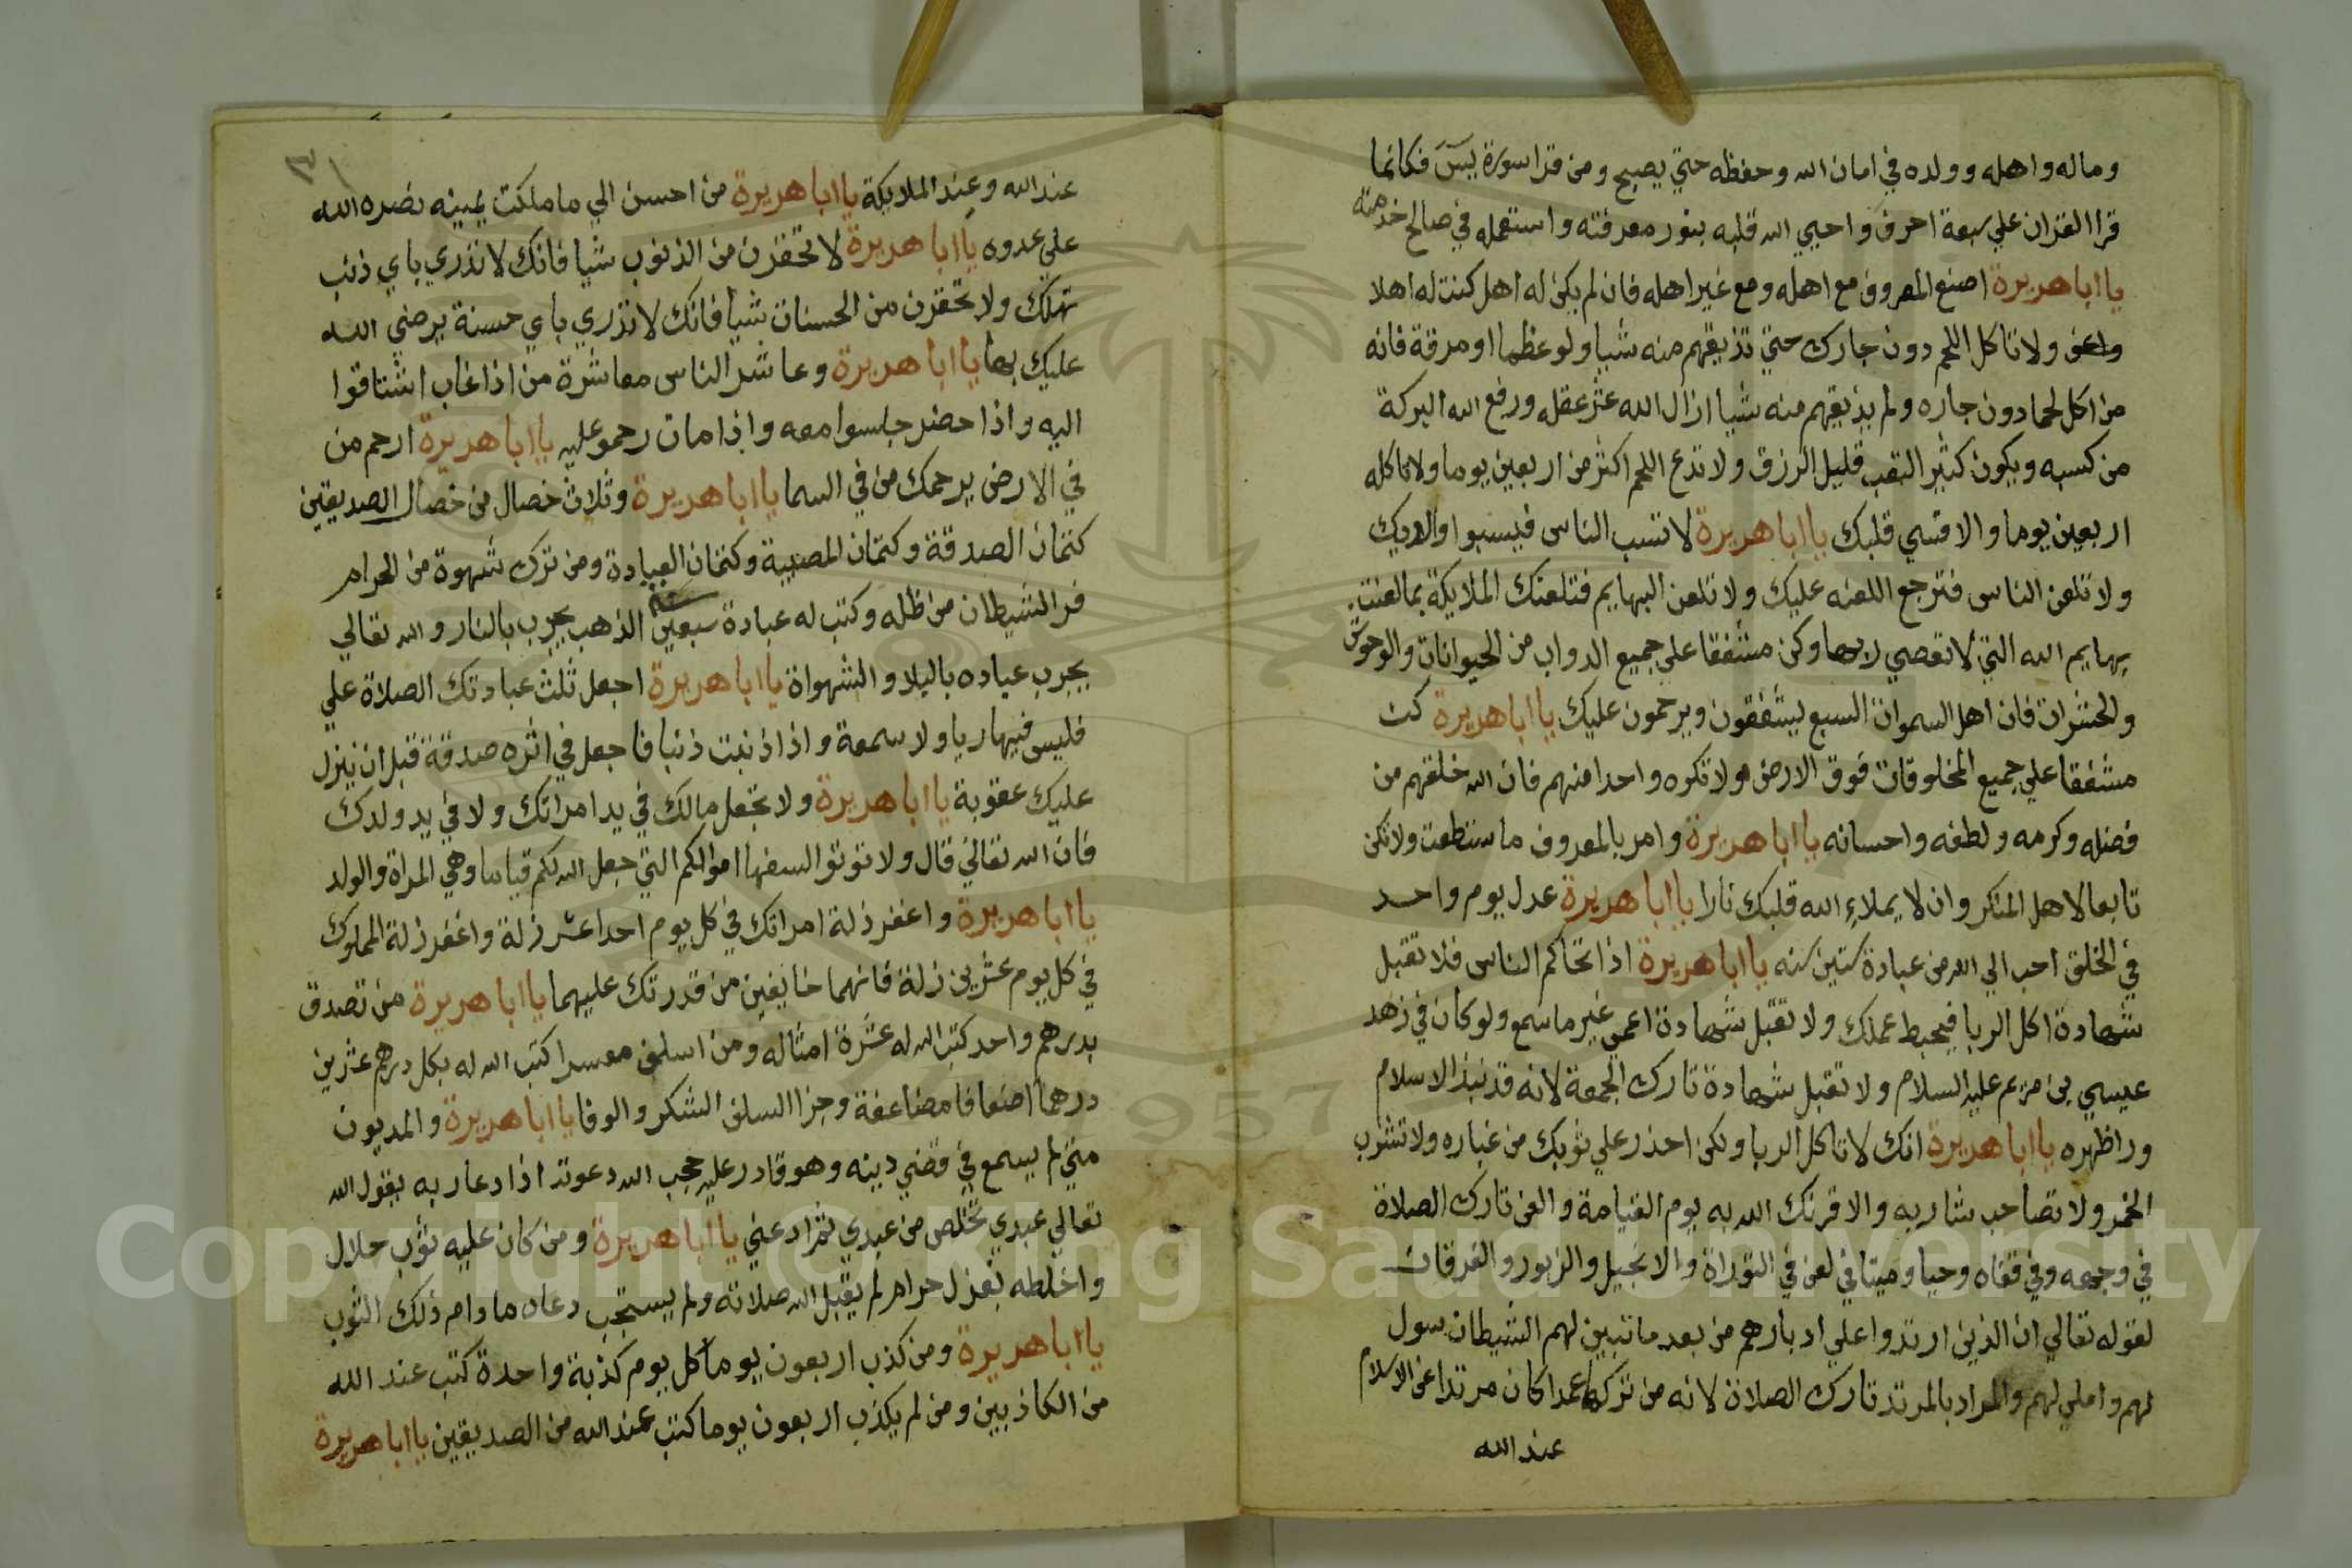 وماله واهله وولده في امان الله وحفظه حتي يصبح ومن قرا سورة يس فكانما
قرا القران علي سبعة احرف واحيي الله قلبه بنور معرفته واستعمله في صالح خدمته
يا ابا هريرة اصنع المعروف مع اهله ومع غير اهله فان لم يكن له اهل كنت له اهلا
ولا تاكل اللحم دون جارك حتي تذيقهم منه شيا ولو عظما او مرقة فانه
من اكل لحما دون جاره ولم يذيقهم منه شيا ازال الله عشر عقله ورفع الله البركة
من كسبه ويكون كثير التعب قليل الرزق ولا تدع اللحم اكثر من اربعين يوما ولا تاكله
اربعين يوما والا قسي قلبك يا ابا هريرة لا تسب الناس فيسبوا والديك
ولا تلعن الناس فترجع اللعنه عليك ولا تلعن البهايم فتلعنك الملايكة بما لعنت
بهايم الله التي لا تعصي ربها وكن مشفقا علي جميع الدواب من الحيوانات والوحوش
والحشرات فان اهل السموات السبع ليشفقون ويرحمون عليك يا ابا هريرة كن
مشفقا علي جميع المخلوقات فوق الارض ولا تكره واحدا منهم فان الله خلقهم من
فضله وكرمه ولطفه واحسانه يا ابا هريرة وامر بالمعروف ما ستطعت ولا تكن
تابعا لاهل المنكر وان لا يملاء الله قلبك نارا يا ابا هريرة عدل يوم واحد
في الخلق احب الي الله من عبادة ستين سنه يا ابا هريرة اذا تحاكم الناس فلا تقبل
شهادة اكل الربا فيحبط عملك ولا تقبل شهادة اعمي غير ما سمع ولو كان في زهد
عيسي بن مريم عليه السلام ولا تقبل شهادة تارك الجمعة لانه قد نبذ الاسلام
ورا ظهره يا ابا هريرة انك لا تاكل الربا ولكن احذر علي ثوبك من غباره ولا تشرب
الخمر ولا تصاحب شاربه والا قرنك الله به يوم القيامة والعن تارك الصلاة
في وجهه وفي قفاه وحيا وميتا في لعن في التوراة والانجيل والزبور والفرقان
لقوله تعالي ان الذين ارتدوا علي ادبارهم من بعد ما تبين لهم الشيطان سول
لهم واملي لهم والمراد بالمرتد تارك الصلاة لانه من تركها عمدا كان مرتدا عن الاسلام
عند الله
عند الله وعند الملايكة يا ابا هريرة من احسن الي ما ملكت يمينه نصره الله
علي عدوه يا ابا هريرة لا تحقرن من الذنوب شيا فانك لا تدري باي ذنب
تهلك ولا تحقرن من الحسنات شيا فانك لا تدري باي حسنة يرضي الله
عليك بها يا ابا هريرة وعاشر الناس معاشرة من اذا غاب اشتاقوا
اليه واذا حضر جلسوا معه واذا مات رحموا عليه يا ابا هريرة ارحم من
في الارض يرحمك من في السما يا ابا هريرة وثلاث خصال من خصال الصديقين
كتمان الصدقة وكتمان المصيبة وكتمان العبادة ومن ترك شهوة من الحرام
فر الشيطان من ظله وكتب له عبادة سبعين سنه الذهب يجرب بالنار والله تعالي
يجرب عباده بالبلا والشهواة يا ابا هريرة اجعل ثلث عبادتك الصلاة علي
فليس فيها ريا ولا سمعة واذا اذنبت ذنبا فاجعل في اثره صدقة قبل ان ينزل
عليك عقوبة يا ابا هريرة ولا تجعل مالك في يد امراتك ولا في يد ولدك
فان الله تعالي قال ولا توتوا السفها اموالكم التي جعل الله لكم قياما وهي المراة والولد
يا ابا هريرة واغفر زلة امراتك في كل يوم احدا عشر زلة واغفر زلة المملوك
في كل يوم عشرين زلة فانهما خايفين من قدرتك عليهما يا ابا هريرة من تصدق
بدرهم واحد كتب الله له عشرة امثاله ومن اسلف معسرا كتب الله له بكل درهم عشرين
درهما اضعافا مضاعفة وجزا السلف الشكر والوفا يا ابا هريرة والمديون
متي لم يسمع في قضي دينه وهو قادر عليه حجب الله دعوته اذا دعا ربه يقول الله
تعالي عبدي تخلص من عبدي ثم ادعني يا ابا هريرة ومن كان عليه ثوب حلال
واخلطه بغزل حرام لم يقبل الله صلاته ولم يستجب دعاه ما دام ذلك الثوب
يا ابا هريرة ومن كذب اربعون يوما كل يوم كذبة واحدة كتب عند الله
من الكاذبين ومن لم يكذب اربعون يوما كتب عند الله من الصديقين يا ابا هريرة
Copyright © King Saud University
1957